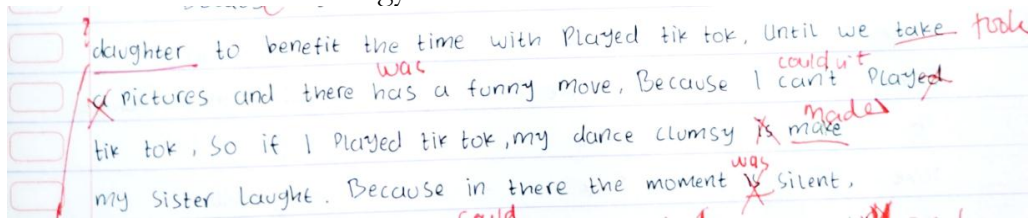 ?
daughter to benefit the time with Played tik tok, Until we take took
was could n't
a pictures and there has a funny move, Because I can't Played
made
tik tok, So if I Played tik tok, my dance clumsy is make
was
my sister laught. Because in there the moment is silent,
could